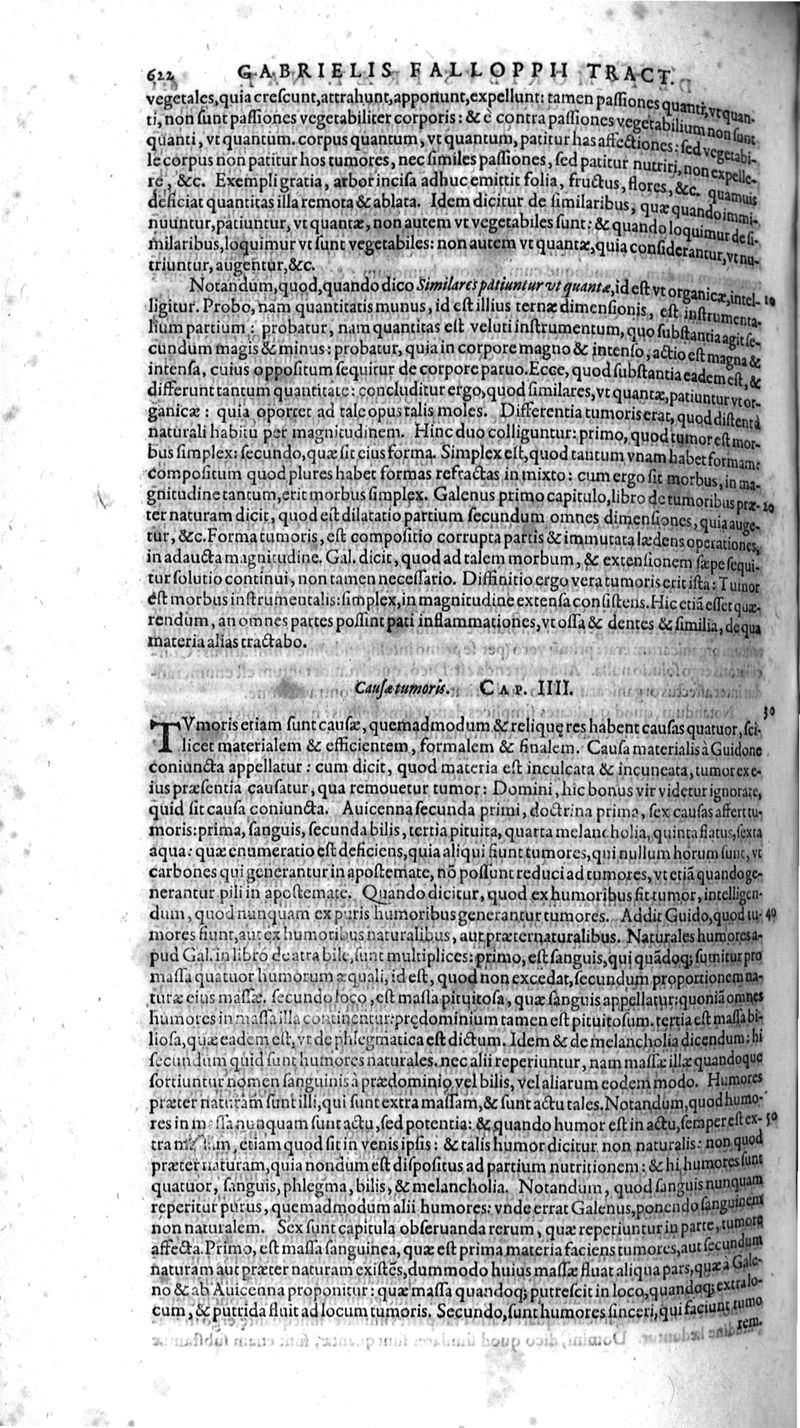 622 GABRIELIS FALLOPPII TRACT.
vegetales,quia crescunt,attrahunt,apponunt,expellunt: tamen passiones quanti,vt quan-
ti, non sunt passiones vegetabiliter corporis: & è contra passiones vegetabilium non sunt
quanti, vt quantum. corpus quantum, vt quantum, patitur has affectiones: sed vegetabi-
le corpus non patitur hos tumores, nec similes passiones, sed patitur nutriri, non expelle-
re, &c. Exempli gratia, arbor incisa adhuc emittit folia, fructus, flores, &c. quamuis
deficiat quantitas illa remota & ablata. Idem dicitur de similaribus, quæ quando immi-
nuuntur,patiuntur, vt quantæ, non autem vt vegetabiles sunt: & quando loquimur de si-
milaribus,loquimur vt sunt vegetabiles: non autem vt quantæ, quia considerantur, vt nu-
triuntur, augentur,&c.
Notandum,quod,quando dico Similares patiuntur vt quantæ, id est vt organicæ, intel- 10
ligitur. Probo, nam quantitatis munus, id est illius ternæ dimensionis, est instrumenta-
lium partium: probatur, nam quantitas est veluti instrumentum, quo substantia agit se-
cundum magis & minus: probatur, quia in corpore magno & intenso, actio est magna &
intensa, cuius oppositum sequitur de corpore paruo. Ecce, quod substantia eadem est, &
differunt tantum quantitate: concluditur ergo,quod similares,vt quantæ,patiuntur vt or-
ganicæ: quia oportet ad tale opus talis moles. Differentia tumoris erat, quod distent à
naturali habitu per magnitudinem. Hinc duo colliguntur: primo, quod tumor est mor-
bus simplex: secundo,quæ sit eius forma. Simplex est,quod tantum vnam habet formam:
compositum quod plures habet formas refractas in mixto: cum ergo sit morbus, in ma-
gnitudine tantum,erit morbus simplex. Galenus primo capitulo,libro de tumoribus præ- 20
ter naturam dicit, quod est dilatatio partium secundum omnes dimensiones, quia auge-
tur, &c. Forma tumoris, est compositio corrupta partis & immutata lædens operationes,
in adaucta magnitudine. Gal. dicit, quod ad talem morbum, & extensionem sæpe sequi-
tur solutio continui, non tamen necessario. Diffinitio ergo vera tumoris erit ista: Tumor
est morbus instrumentalis: simplex, in magnitudine extensa consistens. Hic etiã esset quæ-
rendum, an omnes partes possint pati inflammationes, vt ossa & dentes & similia, de qua
materia alias tractabo.
Causæ tumoris. CAP. IIII.
30
TVmoris etiam sunt causæ, quemadmodum & reliquę res habent causas quatuor, sci-
licet materialem & efficientem, formalem & finalem. Causa materialis à Guidone
coniuncta appellatur: cum dicit, quod materia est inculcata & incuneata, tumor ex e-
ius præsentia causatur, qua remouetur tumor: Domini, hic bonus vir videtur ignorare,
quid sit causa coniuncta. Auicenna secunda primi, doctrina prima, sex causas affert tu-
moris: prima, sanguis, secunda bilis, tertia pituita, quarta melancholia, quinta flatus, sexta
aqua: quæ enumeratio est deficiens, quia aliqui fiunt tumores, qui nullum horum sunt, vt
carbones qui generantur in apostemate, nõ possunt reduci ad tumores, vt etiã quando ge-
nerantur pili in apostemate. Quando dicitur, quod ex humoribus fit tumor, intelligen-
dum, quod nunquam ex puris humoribus generantur tumores. Addit Guido,quod tu- 40
mores fiunt, aut ex humoribus naturalibus, aut præternaturalibus. Naturales humores a-
pud Gal. in libro de atra bile, sunt multiplices: primo, est sanguis, qui quãdoq; sumitur pro
massa quatuor humorum æquali, id est, quod non excedat, secundum proportionem na-
turæ eius massæ. secundo loco, est massa pituitosa, quæ sanguis appellatur: quoniã omnes
humores in massa illa continentur: prędominium tamen est pituitosum. tertia est massa bi-
liosa, quæ eadem est, vt de phlegmatica est dictum. Idem & de melancholia dicendum: hi
secundum quid sunt humores naturales. nec alii reperiuntur, nam massæ illæ quandoque
sortiuntur nomen sanguinis à prædominio, vel bilis, vel aliarum eodem modo. Humores
præter naturam sunt illi, qui sunt extra massam, & sunt actu tales. Notandum, quod humo-
res in massa nunquam sunt actu, sed potentia: & quando humor est in actu, semper est ex- 50
tra massam, etiam quod sit in venis ipsis: & talis humor dicitur non naturalis: non quod
præter naturam, quia nondum est dispositus ad partium nutritionem: & hi humores sunt
quatuor, sanguis, phlegma, bilis, & melancholia. Notandum, quod sanguis nunquam
reperitur purus, quemadmodum alii humores: vnde errat Galenus, ponendo sanguinem
non naturalem. Sex sunt capitula obseruanda rerum, quæ reperiuntur in parte, tumore
affecta. Primo, est massa sanguinea, quæ est prima materia faciens tumores, aut secundum
naturam aut præter naturam existẽs, dummodo huius massæ fluat aliqua pars, quæ à Gale-
no & ab Auicenna proponitur: quæ massa quandoq; putrescit in loco, quandoq; extra lo-
cum, & putrida fluit ad locum tumoris. Secundo, sunt humores sinceri, qui faciunt tumo
rem.